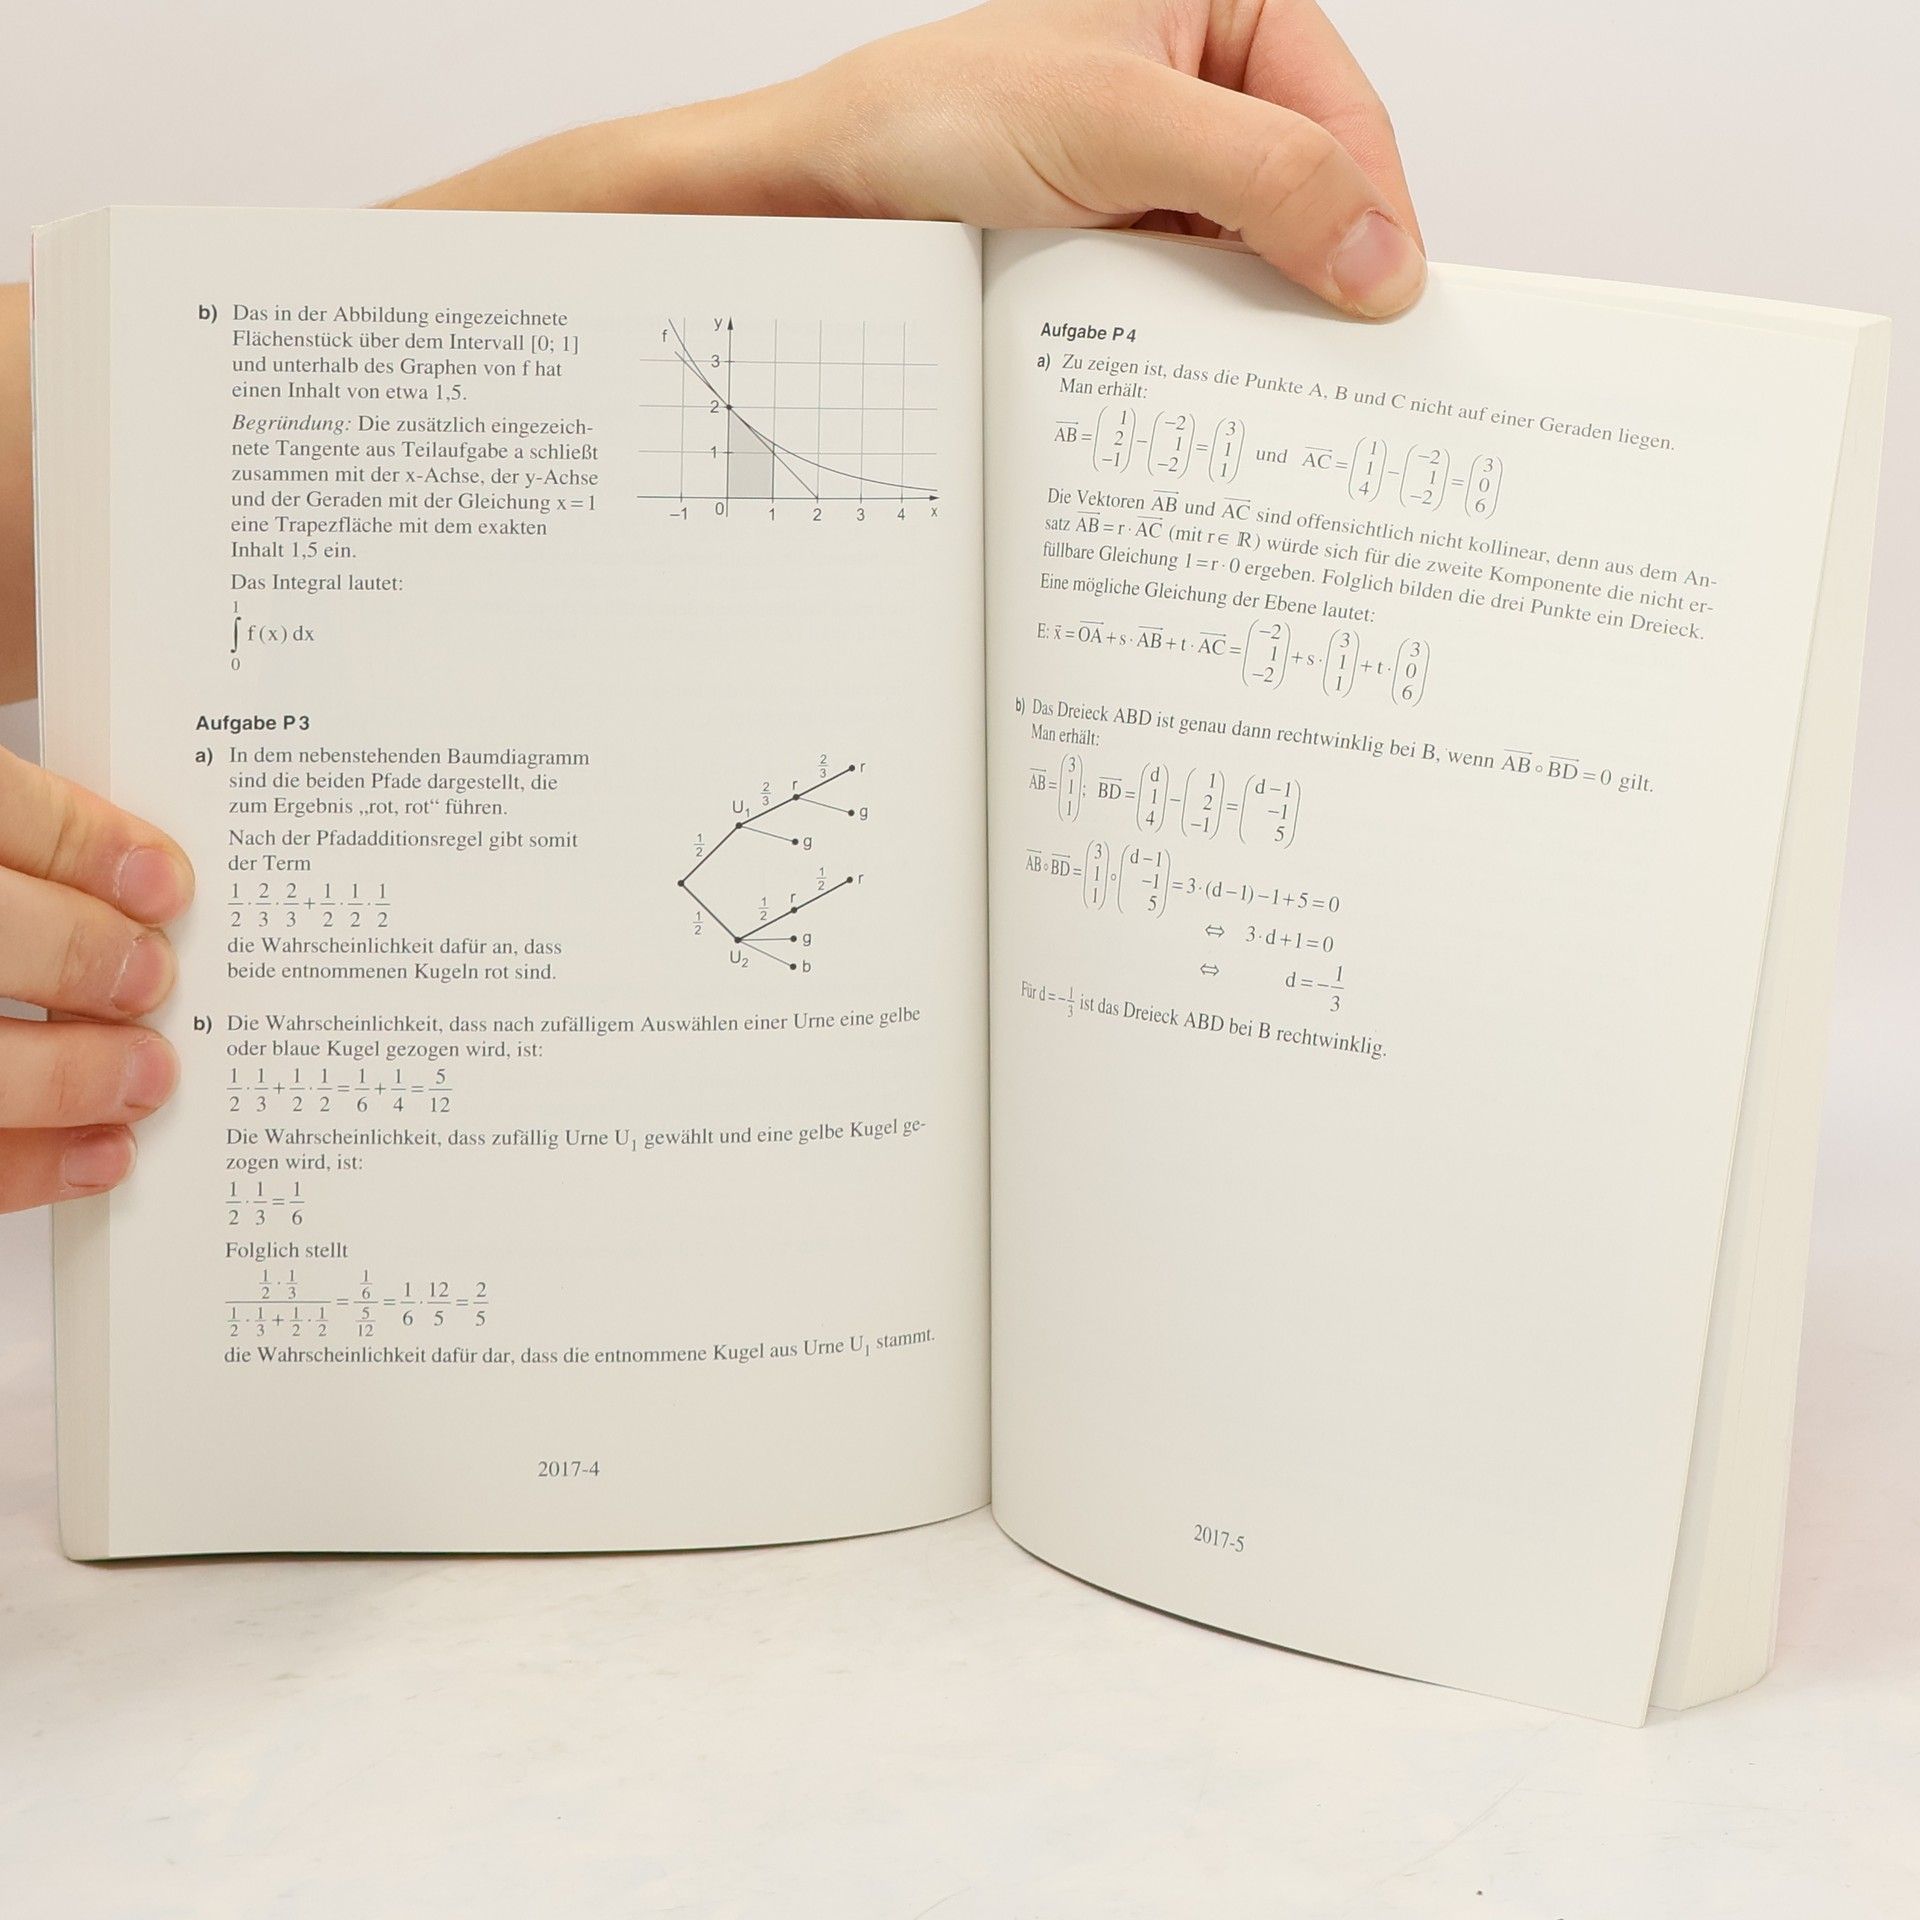 b) Das in der Abbildung eingezeichnete
Flächenstück über dem Intervall [0; 1]
und unterhalb des Graphen von f hat
einen Inhalt von etwa 1,5.
Begründung: Die zusätzlich eingezeich-
nete Tangente aus Teilaufgabe a schließt
zusammen mit der x-Achse, der y-Achse
und der Geraden mit der Gleichung x = 1
eine Trapezfläche mit dem exakten
Inhalt 1,5 ein.
Das Integral lautet:
1
∫ f(x) dx
0
f
y
3
2
1
−1 0 1 2 3 4 x
Aufgabe P 3
a) In dem nebenstehenden Baumdiagramm
sind die beiden Pfade dargestellt, die
zum Ergebnis „rot, rot“ führen.
Nach der Pfadadditionsregel gibt somit
der Term
1/2 · 2/3 · 2/3 + 1/2 · 1/2 · 1/2
die Wahrscheinlichkeit dafür an, dass
beide entnommenen Kugeln rot sind.
2/3 r
2/3 r
U₁ g
1/2 g
1/2 r
1/2 r
1/2 g
U₂ b
b) Die Wahrscheinlichkeit, dass nach zufälligem Auswählen einer Urne eine gelbe
oder blaue Kugel gezogen wird, ist:
1/2 · 1/3 + 1/2 · 1/2 = 1/6 + 1/4 = 5/12
Die Wahrscheinlichkeit, dass zufällig Urne U₁ gewählt und eine gelbe Kugel ge-
zogen wird, ist:
1/2 · 1/3 = 1/6
Folglich stellt
(1/2 · 1/3)/(1/2 · 1/3 + 1/2 · 1/2) = (1/6)/(5/12) = 1/6 · 12/5 = 2/5
die Wahrscheinlichkeit dafür dar, dass die entnommene Kugel aus Urne U₁ stammt.
2017-4
Aufgabe P 4
a) Zu zeigen ist, dass die Punkte A, B und C nicht auf einer Geraden liegen.
Man erhält:
AB = (1 2 −1) − (−2 1 −2) = (3 1 1) und AC = (1 1 4) − (−2 1 −2) = (3 0 6)
Die Vektoren AB und AC sind offensichtlich nicht kollinear, denn aus dem An-
satz AB = r · AC (mit r ∈ ℝ) würde sich für die zweite Komponente die nicht er-
füllbare Gleichung 1 = r · 0 ergeben. Folglich bilden die drei Punkte ein Dreieck.
Eine mögliche Gleichung der Ebene lautet:
E: x⃗ = OA + s · AB + t · AC = (−2 1 −2) + s · (3 1 1) + t · (3 0 6)
b) Das Dreieck ABD ist genau dann rechtwinklig bei B, wenn AB ∘ BD = 0 gilt.
Man erhält:
AB = (3 1 1); BD = (d 1 4) − (1 2 −1) = (d−1 −1 5)
AB ∘ BD = (3 1 1) ∘ (d−1 −1 5) = 3 · (d − 1) − 1 + 5 = 0
⇔ 3 · d + 1 = 0
⇔ d = −1/3
Für d = −1/3 ist das Dreieck ABD bei B rechtwinklig.
2017-5